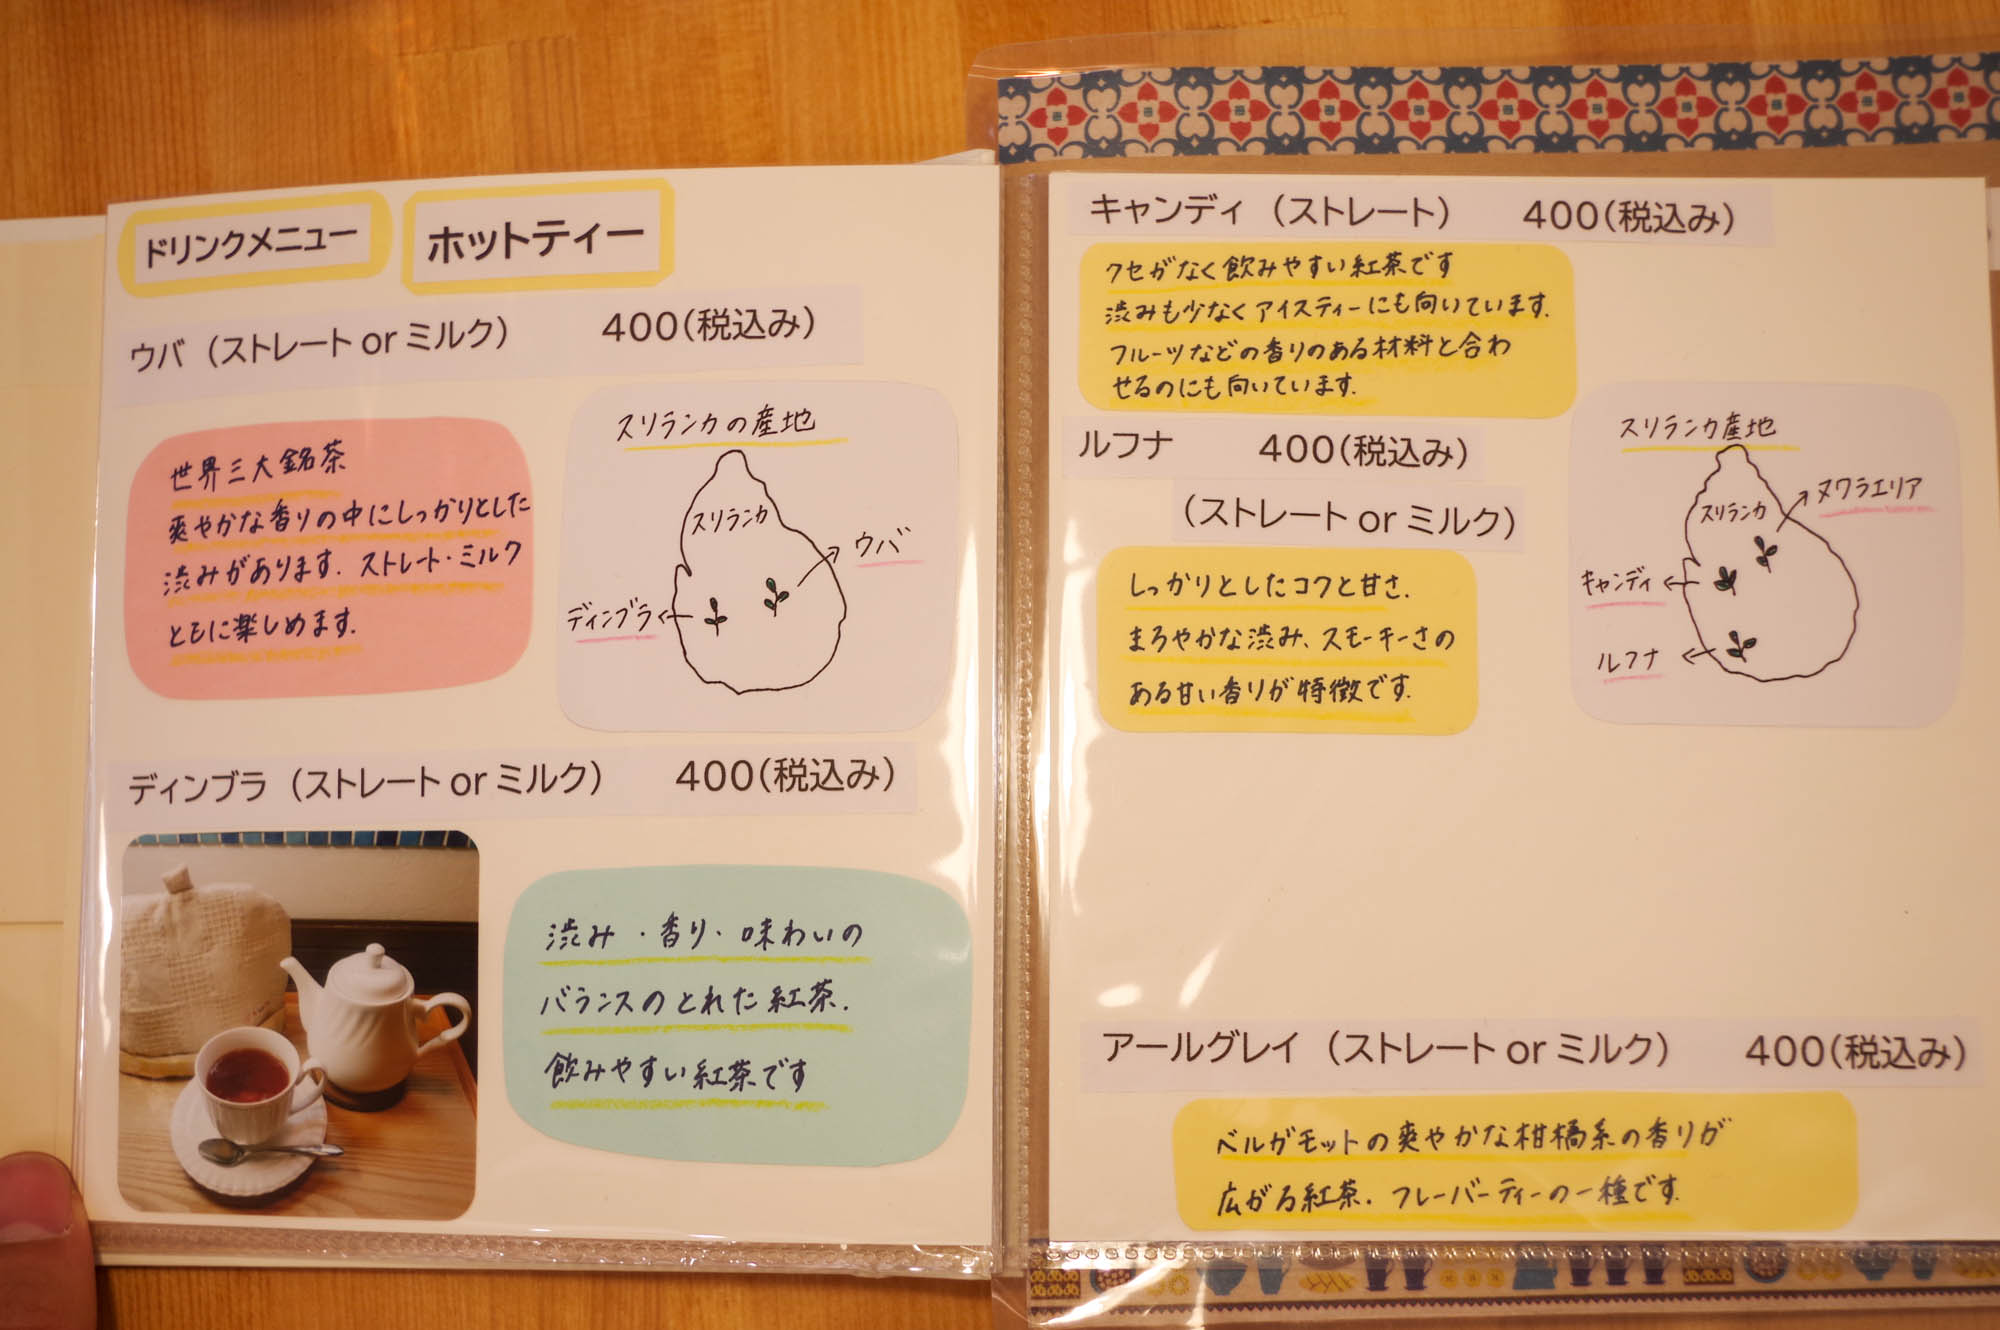 ドリンクメニュー
ホットティー
ウバ（ストレート or ミルク） 400(税込み)
世界三大銘茶
爽やかな香りの中にしっかりとした
渋みがあります．ストレート・ミルク
ともに楽しめます．
スリランカの産地
スリランカ
ウバ
ディンブラ
ディンブラ（ストレート or ミルク） 400(税込み)
渋み・香り・味わいの
バランスのとれた紅茶．
飲みやすい紅茶です
キャンディ（ストレート） 400(税込み)
クセがなく飲みやすい紅茶です
渋みも少なくアイスティーにも向いています．
フルーツなどの香りのある材料と合わ
せるのにも向いています．
ルフナ 400(税込み)
（ストレート or ミルク）
しっかりとしたコクと甘さ．
まろやかな渋み、スモーキーさの
ある甘い香りが特徴です．
スリランカ産地
スリランカ
ヌワラエリア
キャンディ
ルフナ
アールグレイ（ストレート or ミルク） 400(税込み)
ベルガモットの爽やかな柑橘系の香りが
広がる紅茶．フレーバーティーの一種です．